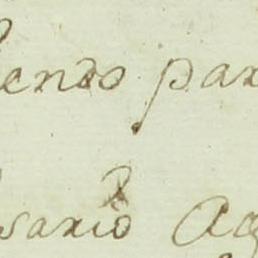 endo par
sario Ag